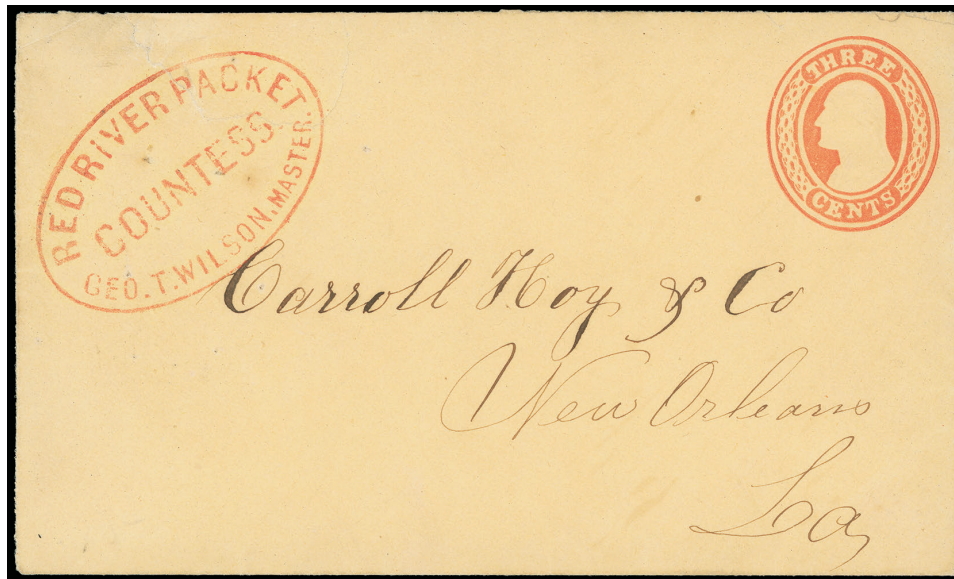 RED RIVER PACKET.
COUNTESS
GEO. T. WILSON, MASTER.
THREE
CENTS
Carroll Hoy & Co
New Orleans
La